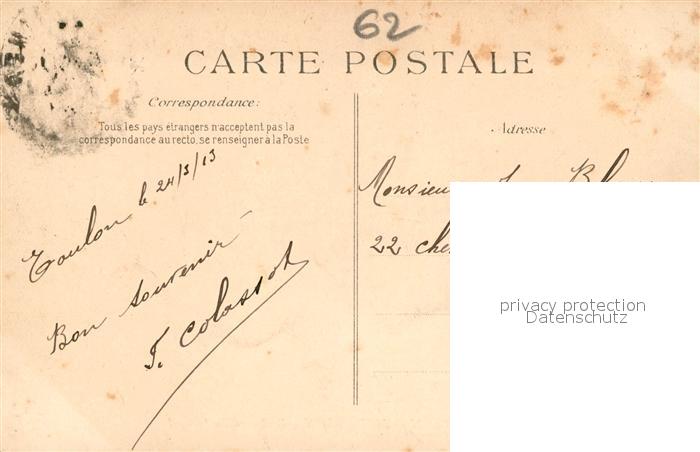 62
CARTE POSTALE
Correspondance:
Tous les pays étrangers n'acceptent pas la
correspondance au recto, se renseigner à la Poste
Toulon le 24/3/13
Bon souvenir
F. Colassot
Adresse
Monsieur
22
privacy protection
Datenschutz